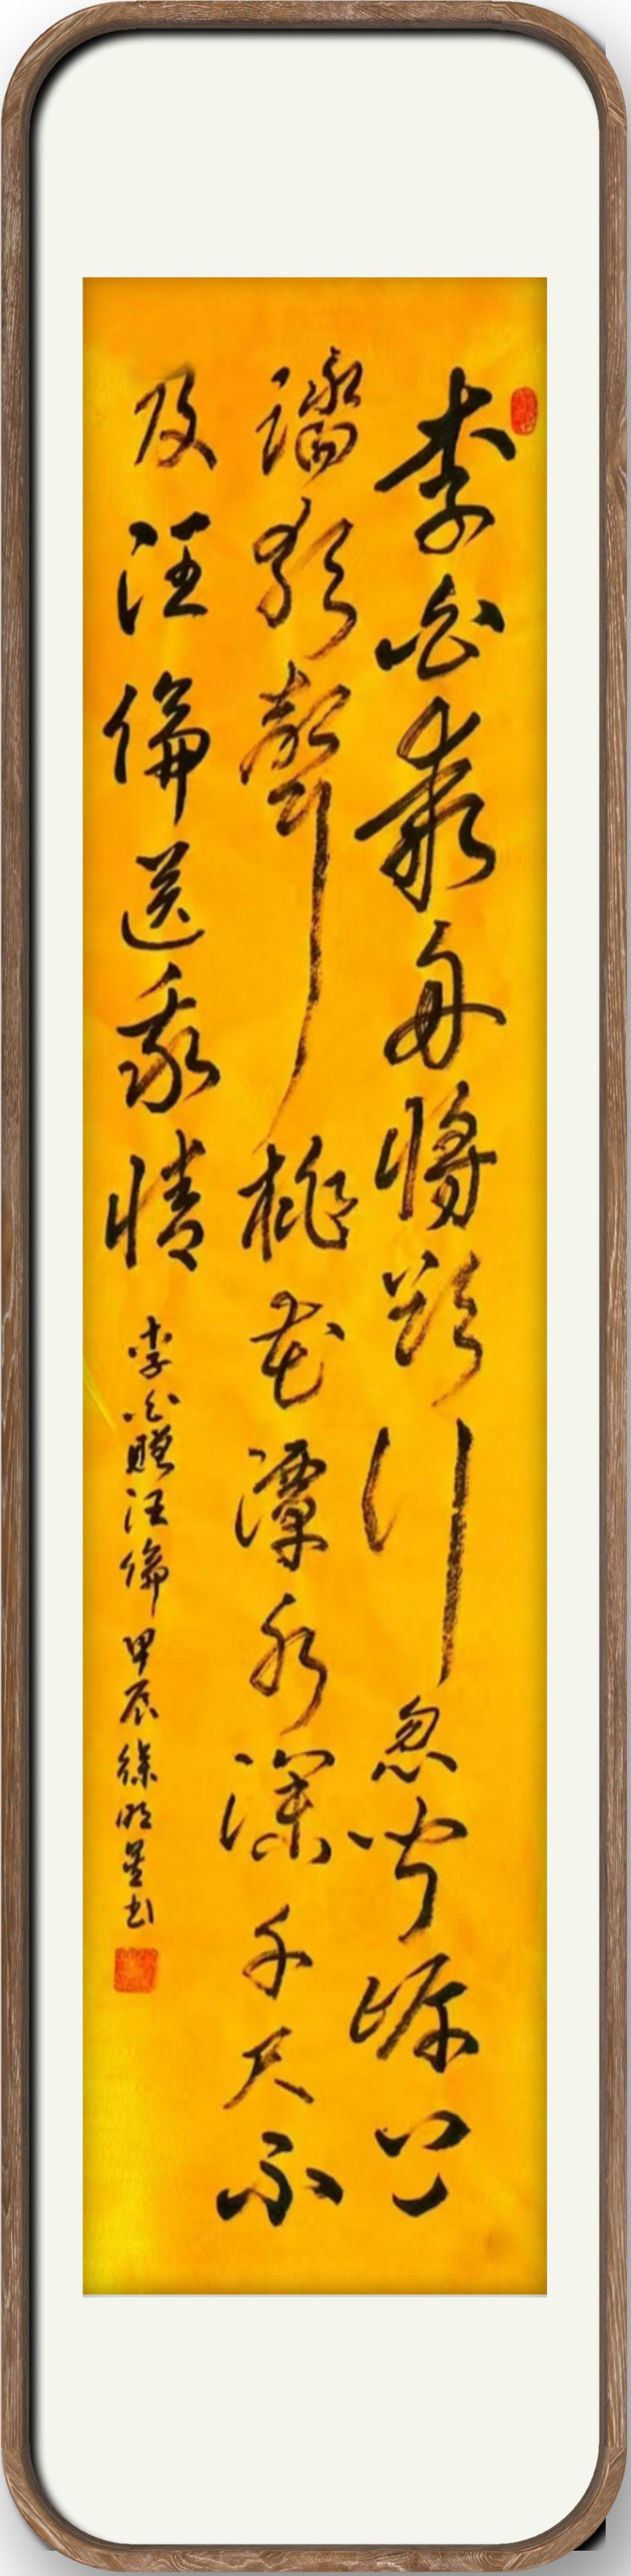 李白乘舟將欲行忽聞岸上
踏歌聲桃花潭水深千尺不
及汪倫送我情
李白贈汪倫甲辰徐明星书